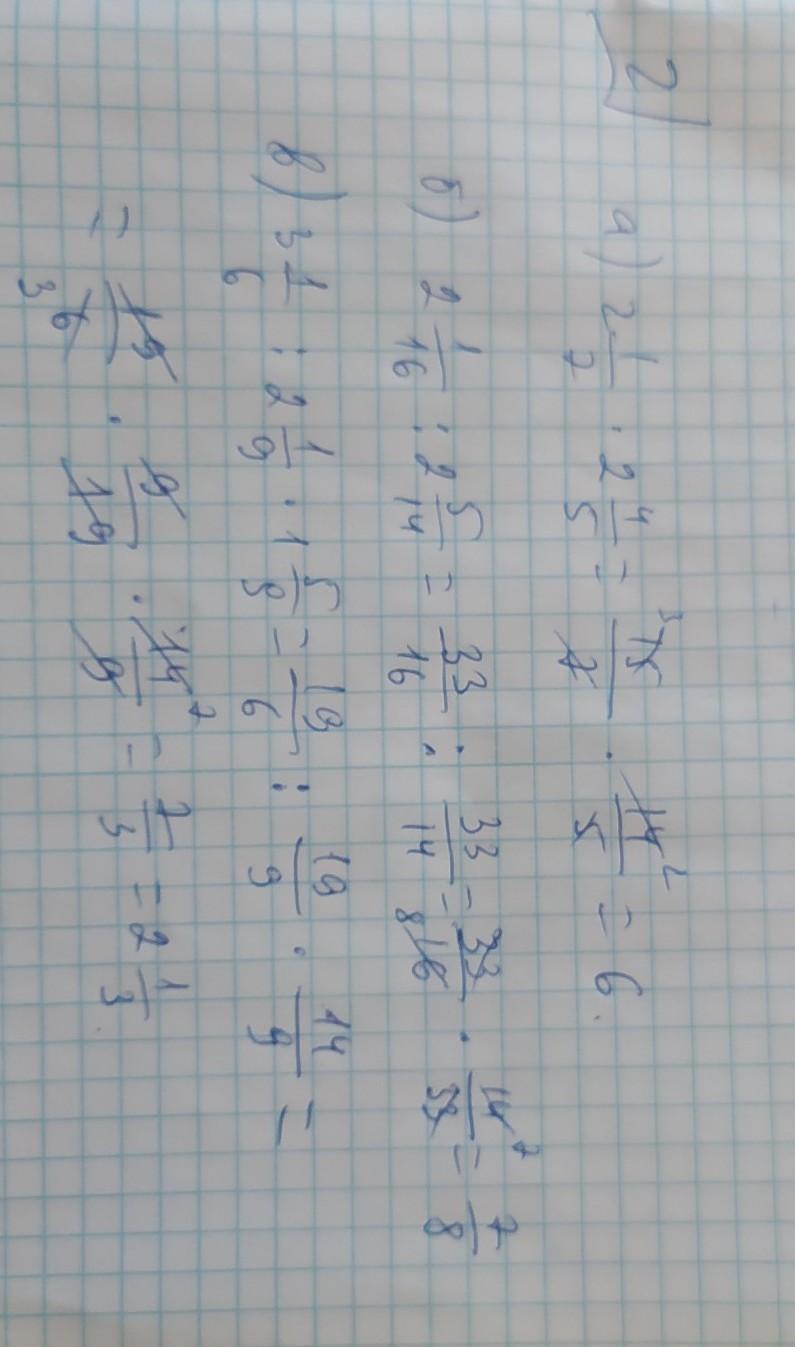 2
а) 2 1/7 · 2 4/5 = 15/7 · 14/5 = 6.
б) 2 1/16 : 2 5/14 = 33/16 : 33/14 = 33/16 · 14/33 = 7/8
в) 3 1/6 : 2 1/9 · 1 5/9 = 19/6 : 19/9 · 14/9 =
= 19/6 · 9/19 · 14/9 = 7/3 = 2 1/3.